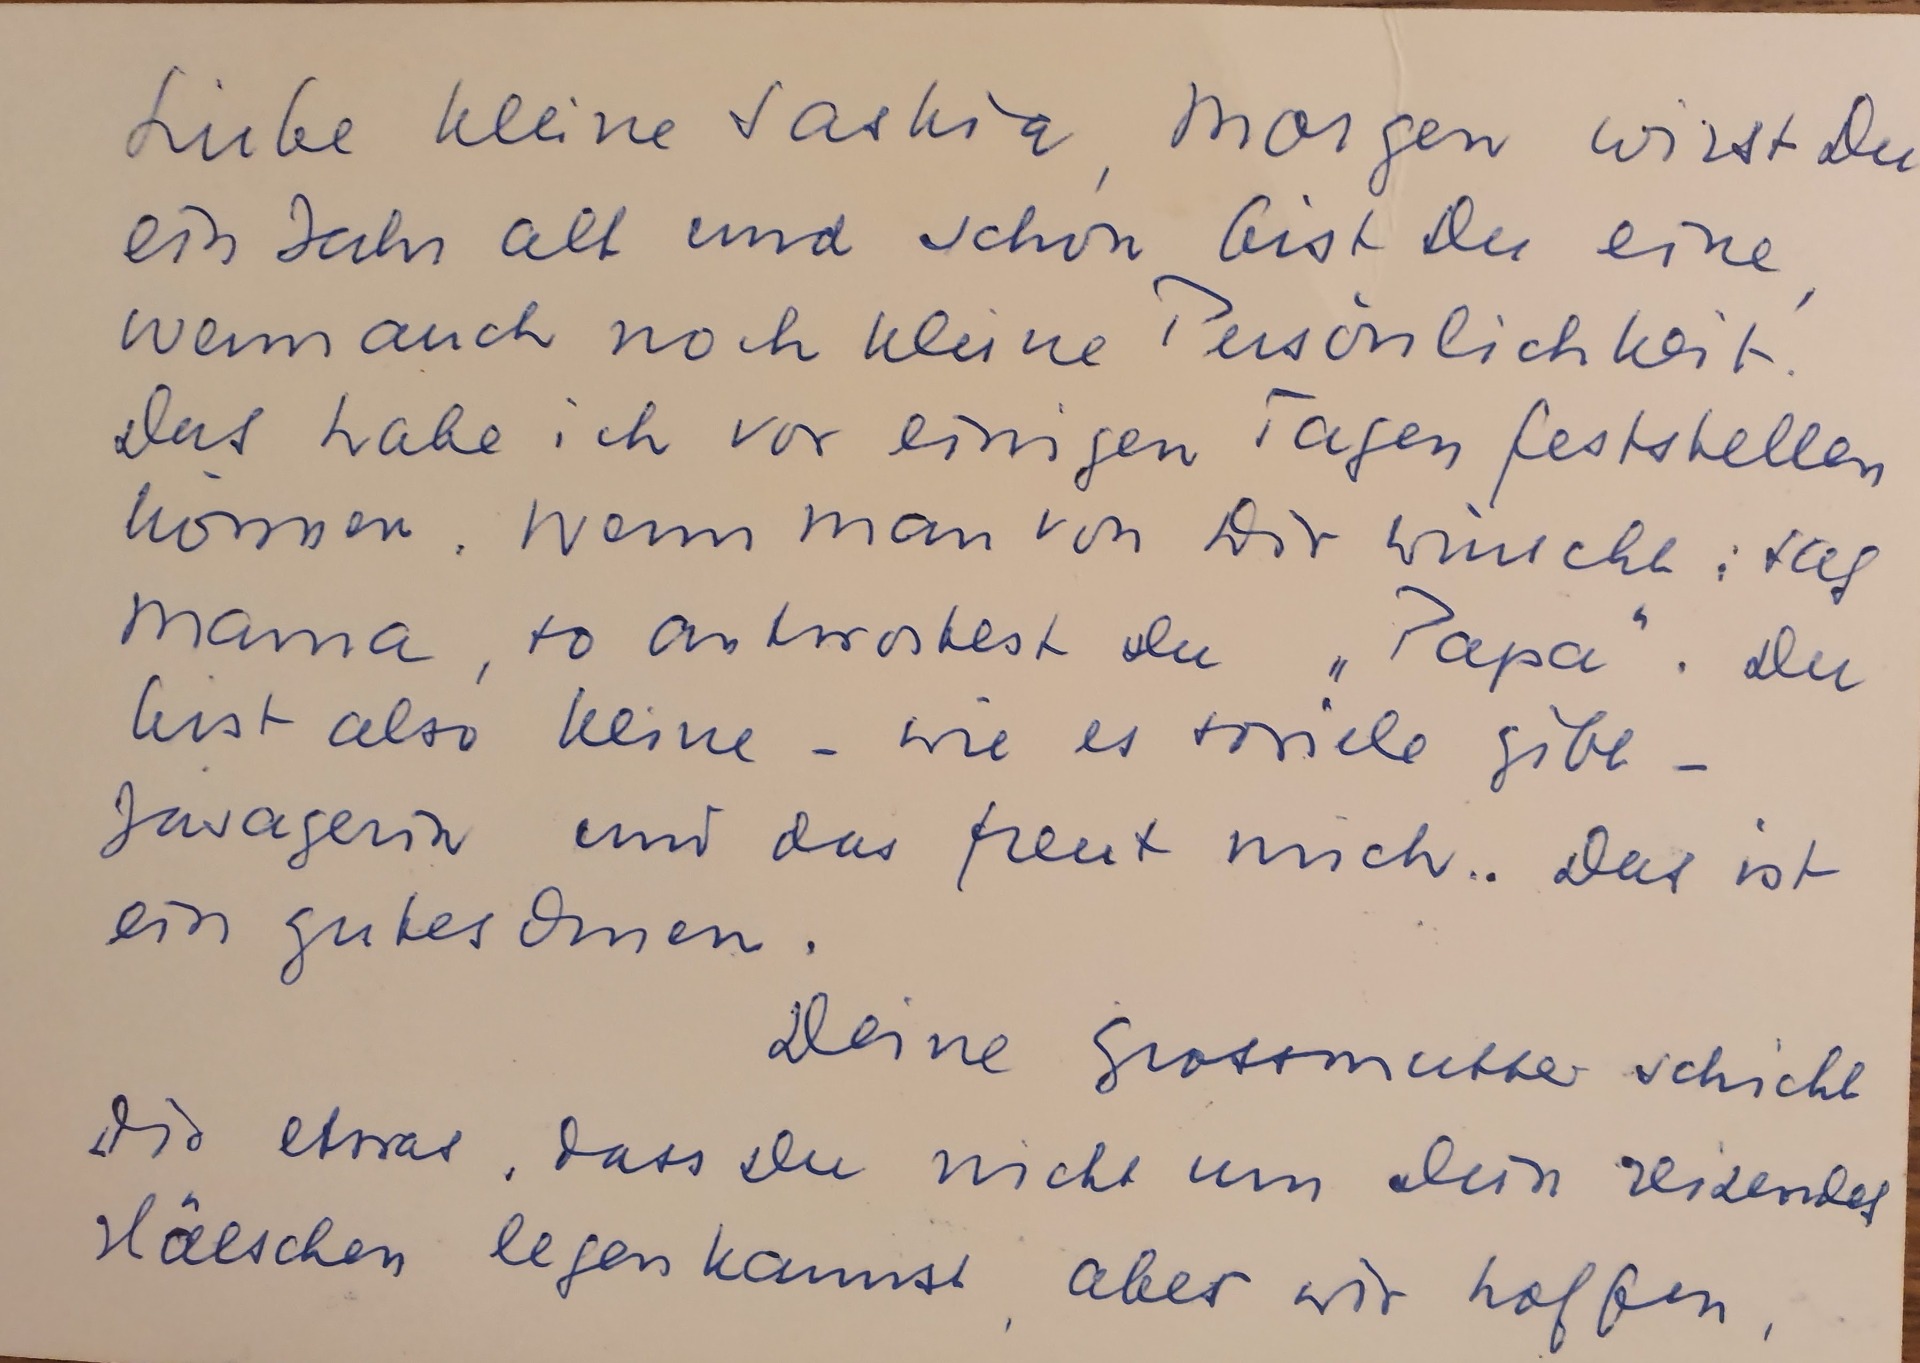 Liebe kleine Saskia, Morgen wirst Du
ein Jahr alt und schon bist Du eine,
wenn auch noch kleine Persönlichkeit.
Das habe ich vor einigen Tagen feststellen
können. Wenn man von Dir wünscht: sag
Mama, so antwortest Du „Papa". Du
bist also keine - wie es soviele gibt -
Jasagerin und das freut mich.. Das ist
ein gutes Omen.
Deine Grossmutter schickt
Dir etwas, dass Du nicht um Dein reizendes
Hälschen legen kannst, aber wir hoffen,